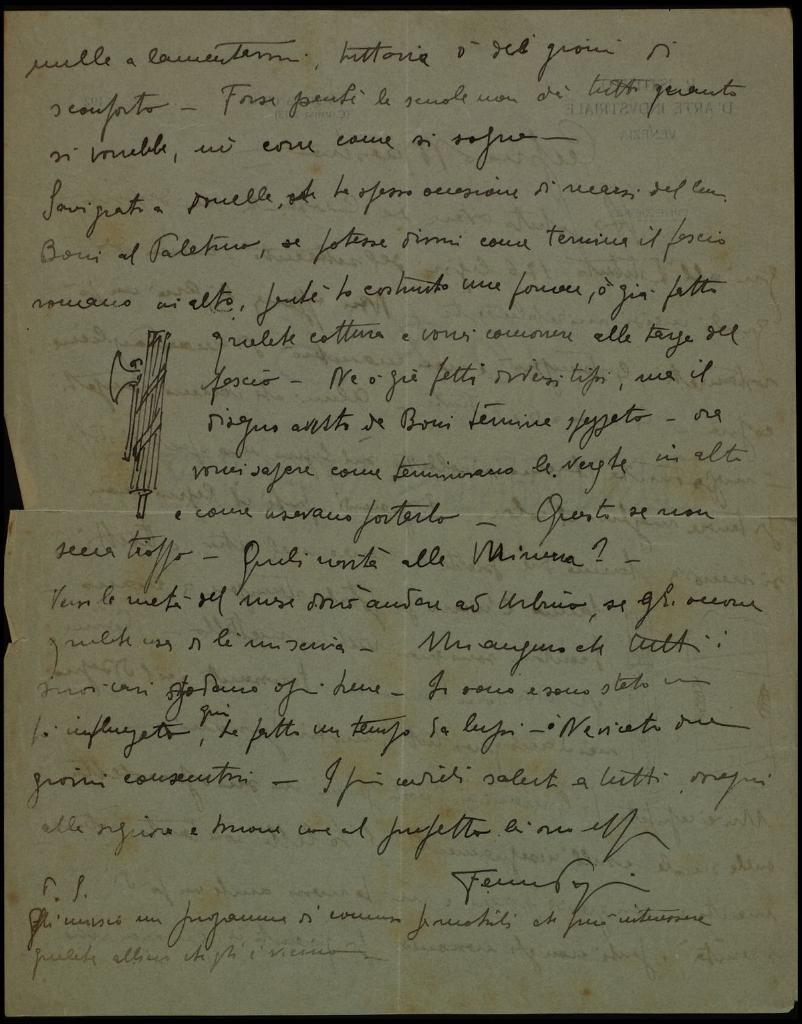 nulla a lamentarmi, tuttavia ò dei giorni di
sconforto — Forse perché la scuola non dà tutti quanto
si vorrebbe, né come come si sogna —
Lei che ha spesso occasione di recarsi dal Com.
Boni al Palatino, se potesse dirmi come termina il fascio
romano in alto, perché ho costruito una fornace, ò già fatto
qualche cottura e vorrei concorrere alle targe del
fascio — Ne ò già fatti diversi tipi, ma il
disegno avuto da Boni termina spezzato — ora
vorrei sapere come terminavano le verghe in alto
e come usavano portarlo — Questo se non
secca troppo — Quali novità alla Minerva? —
Verso la metà del mese dovrò andare ad Urbino, se gli occorre
qualche cosa di là mi scriva — Mi auguro che tutti i
suoi cari godano ogni bene — Io sono e sono stato un
po' influenzato, qui ha fatto un tempo da lupi — È nevicato due
giorni consecutivi — I più cordiali saluti a tutti, ossequi
alla signora e
P. S.
Gli unisco un programma di concorso che può interessare
qualche allievo che gli è vicino —